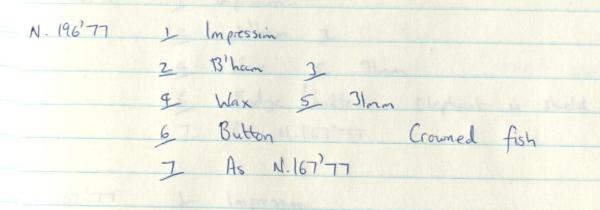 N. 196'77 1 Impression
2 B'ham 3
4 Wax 5 31mm
6 Button Crowned fish
7 As N.167'77